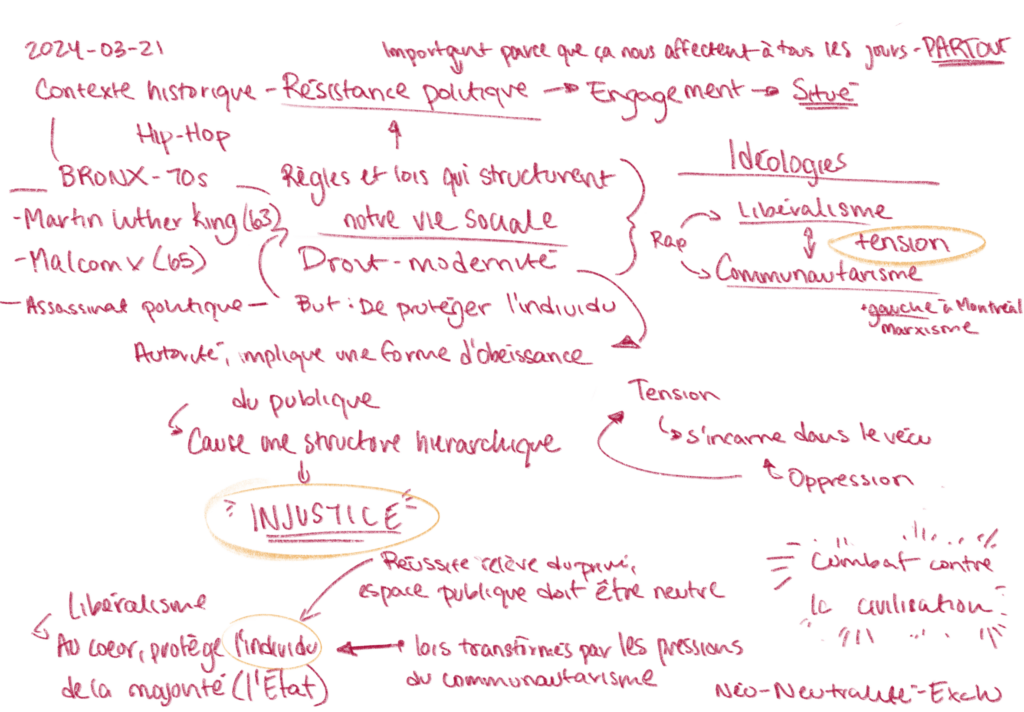 2024-03-21
Important parce que ça nous affectent à tous les jours - PARTOUT
Contexte historique - Résistance politique → Engagement → Situé
Hip-Hop
BRONX - 70s
- Martin Luther King (63)
- Malcom X (65)
- Assassinat politique -
Règles et lois qui structurent
notre vie sociale
Droit - modernité
But : De protéger l'individu
Idéologies
Rap
Libéralisme
tension
Communautarisme
+ gauche à Montréal
marxisme
Autorité, implique une forme d'obéissance
du publique
Cause une structure hierarchique
INJUSTICE
Tension
s'incarne dans le vécu
Oppression
Réussite relève du privé,
espace publique doit être neutre
Libéralisme
Au coeur, protège l'individu
de la majorité (l'État)
lois transformés par les pressions
du communautarisme
Combat contre
la civilisation
Néo-Neutralité-